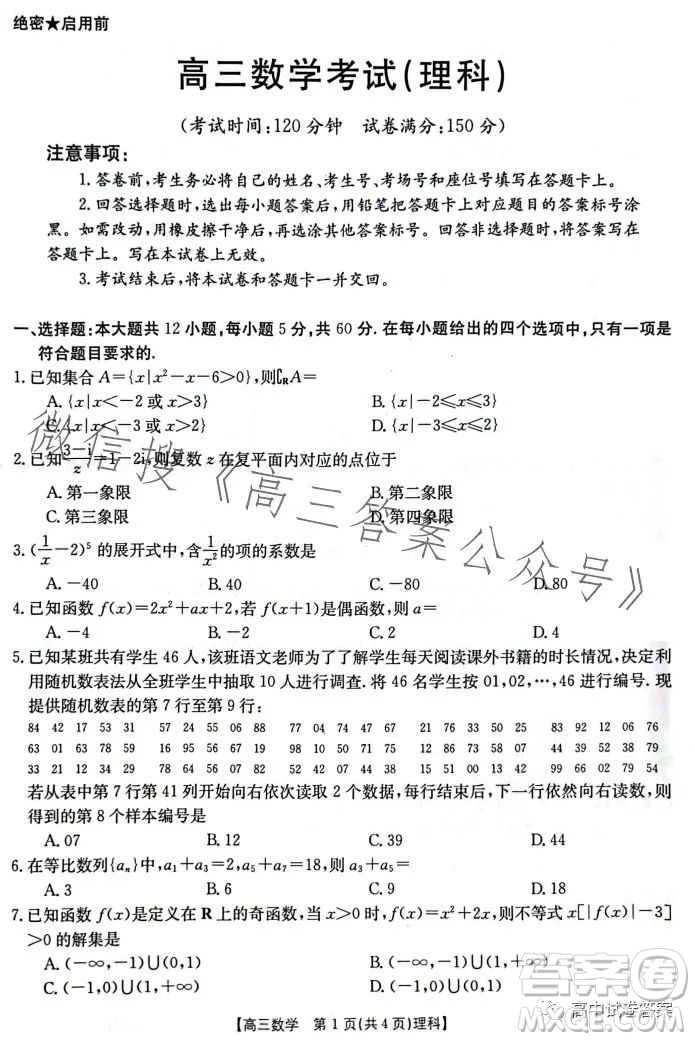 绝密★启用前
高三数学考试(理科)
(考试时间:120分钟 试卷满分:150分)
注意事项:
1.答卷前,考生务必将自己的姓名、考生号、考场号和座位号填写在答题卡上。
2.回答选择题时,选出每小题答案后,用铅笔把答题卡上对应题目的答案标号涂
黑。如需改动,用橡皮擦干净后,再选涂其他答案标号。回答非选择题时,将答案写在
答题卡上。写在本试卷上无效。
3.考试结束后,将本试卷和答题卡一并交回。
一、选择题:本大题共12小题,每小题5分,共60分.在每小题给出的四个选项中,只有一项是
符合题目要求的.
1.已知集合A={x|x²-x-6>0},则∁RA=
A.{x|x<-2或x>3} B.{x|-2≤x≤3}
C.{x|x<-3或x>2} D.{x|-3≤x≤2}
2.已知(3-i)/z=1-2i,则复数z在复平面内对应的点位于
A.第一象限 B.第二象限
C.第三象限 D.第四象限
3.(1/x-2)⁵的展开式中,含1/x²的项的系数是
A.-40 B.40 C.-80 D.80
4.已知函数f(x)=2x²+ax+2,若f(x+1)是偶函数,则a=
A.-4 B.-2 C.2 D.4
5.已知某班共有学生46人,该班语文老师为了了解学生每天阅读课外书籍的时长情况,决定利
用随机数表法从全班学生中抽取10人进行调查.将46名学生按01,02,…,46进行编号.现
提供随机数表的第7行至第9行:
84 42 17 53 31 57 24 55 06 88 77 04 74 47 67 21 76 33 50 25 83 92 12 06 76
63 01 63 78 59 16 95 56 67 19 98 10 50 71 75 12 86 73 58 07 44 39 52 38 79
33 21 12 34 29 78 64 56 07 82 52 42 07 44 38 15 51 00 13 42 99 66 02 79 54
若从表中第7行第41列开始向右依次读取2个数据,每行结束后,下一行依然向右读数,则
得到的第8个样本编号是
A.07 B.12 C.39 D.44
6.在等比数列{aₙ}中,a₁+a₃=2,a₅+a₇=18,则a₃+a₅=
A.3 B.6 C.9 D.18
7.已知函数f(x)是定义在R上的奇函数,当x>0时,f(x)=x²+2x,则不等式x[|f(x)|-3]
>0的解集是
A.(-∞,-1)∪(0,1) B.(-∞,-1)∪(1,+∞)
C.(-1,0)∪(0,1) D.(-1,0)∪(1,+∞)
【高三数学 第1页(共4页)理科】
微信搜《高三答案公众号》
答案卷
高中试卷答案